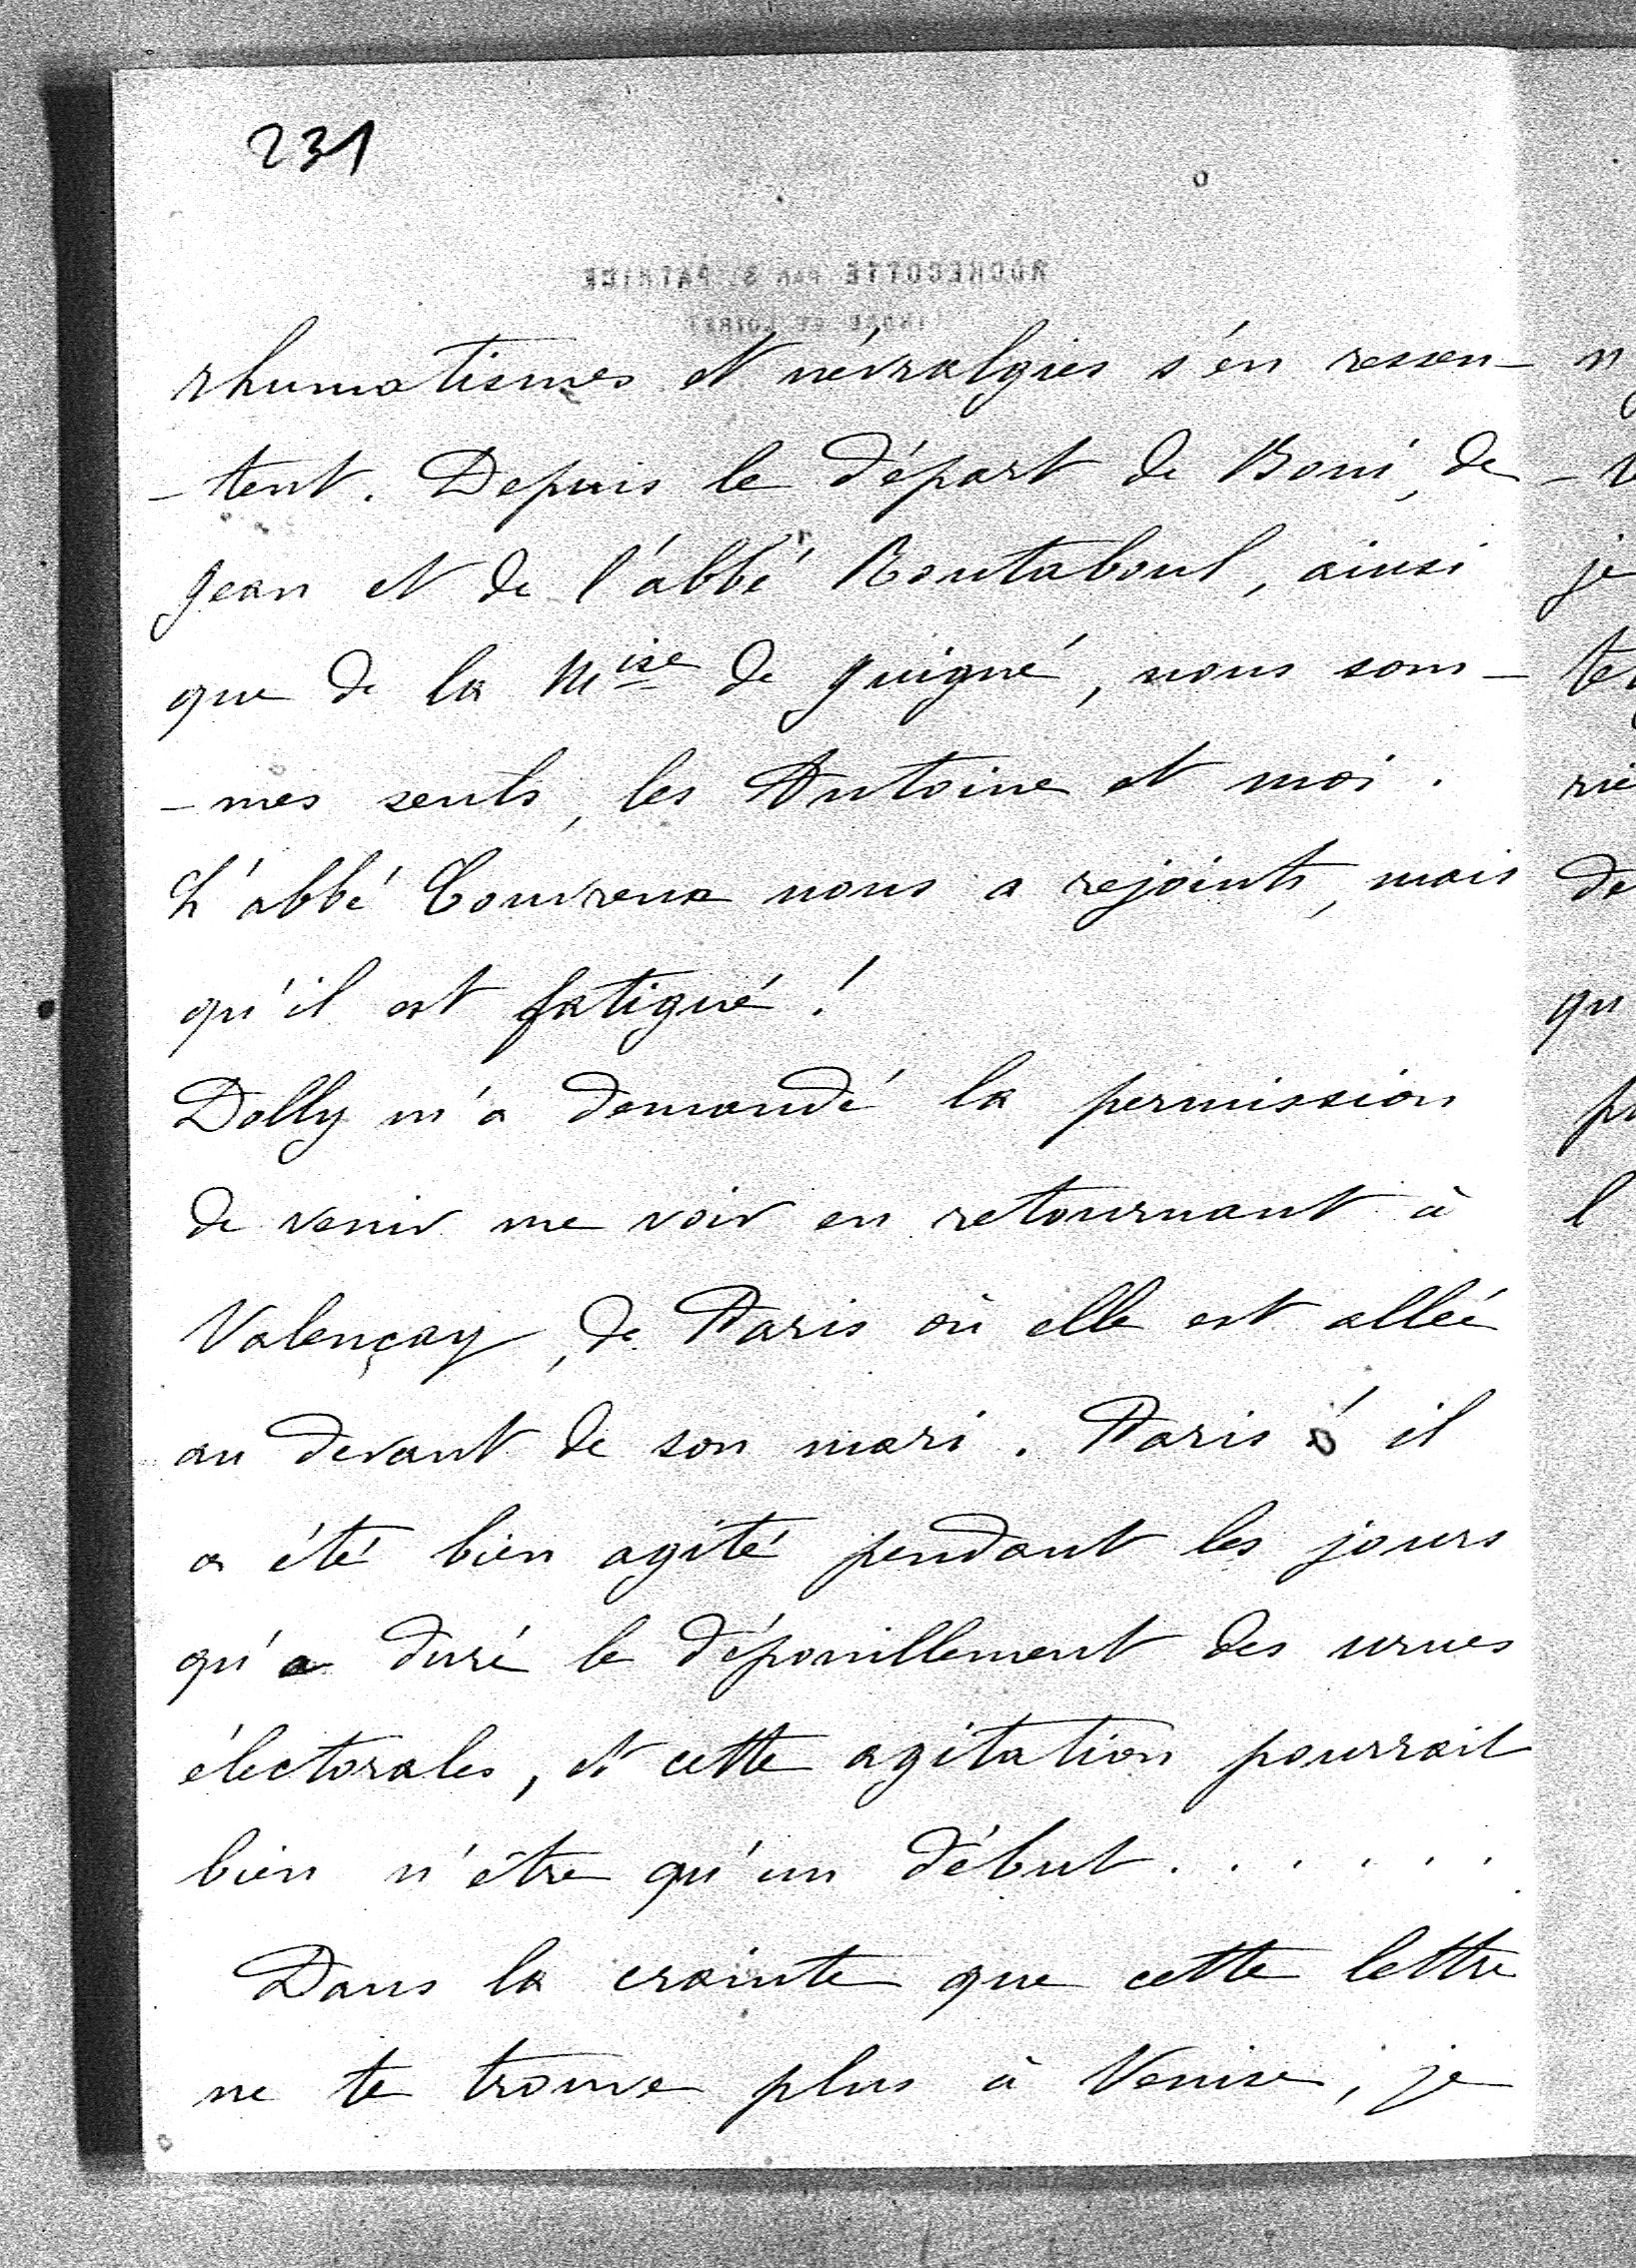 231
ROCHECOTTE PAR St PATRICE
INDRE ET LOIRE
rhumatismes et névralgies s'en ressen-
-tent. Depuis le départ de Boni, de
Jean et de l'abbé Routaboul, ainsi
que de la Mise de Juigné, nous som-
-mes seuls, les Antoine et moi.
L'abbé Couvreux nous a rejoints, mais
qu'il est fatigué !
Dolly m'a demandé la permission
de venir me voir en retournant à
Valençay, de Paris où elle est allée
au devant de son mari. Paris ô il
a été bien agité pendant les jours
qu'a duré le dépouillement des urnes
électorales, et cette agitation pourrait
bien n'être qu'un début . . . . . .
Dans la crainte que cette lettre
ne te trouve plus à Venise, je